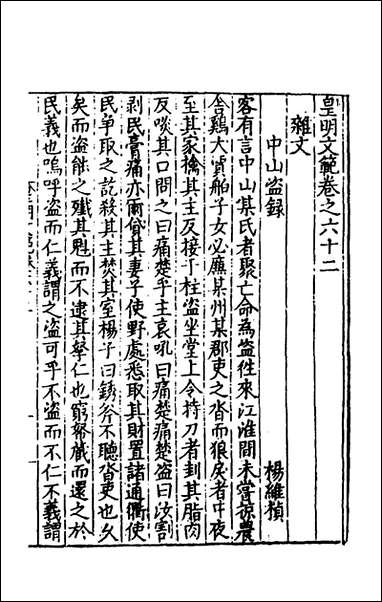 皇明文範卷之六十二
雜文
中山盜録 楊維楨
客有言中山某氏者聚亡命為盜徃來江淮間未嘗諒農
舎鷄大賈舶子女必廉某州某郡吏之沓而狼戾者中夜
至其家擒其主反接于柱盜坐堂上令持刀者刲其脂肉
反啖其口問之曰痛楚乎主哀吼曰痛楚痛楚盜曰汝割
剥民膏痛亦爾貸其妻子使野處悉取其財置諸通衢使
民爭取之訖殺其主焚其室楊子曰銹斧不聽沓吏也久
矣而盜能之殲其魁而不逮其孥仁也窮帑藏而還之於
民義也嗚呼盜而仁義謂之盜可乎不盜而不仁不義謂